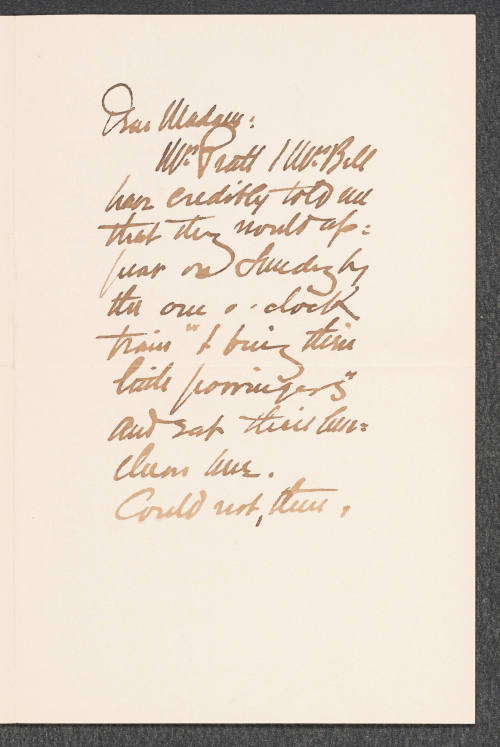 Dear Madam:
Mrs. Pratt & Mrs. Bell
have credibly told me
that they would ap=
pear on Sunday by
the one o'clock
train "& bring their
little porringers"
and eat their lun=
cheon here.
Could not, then,